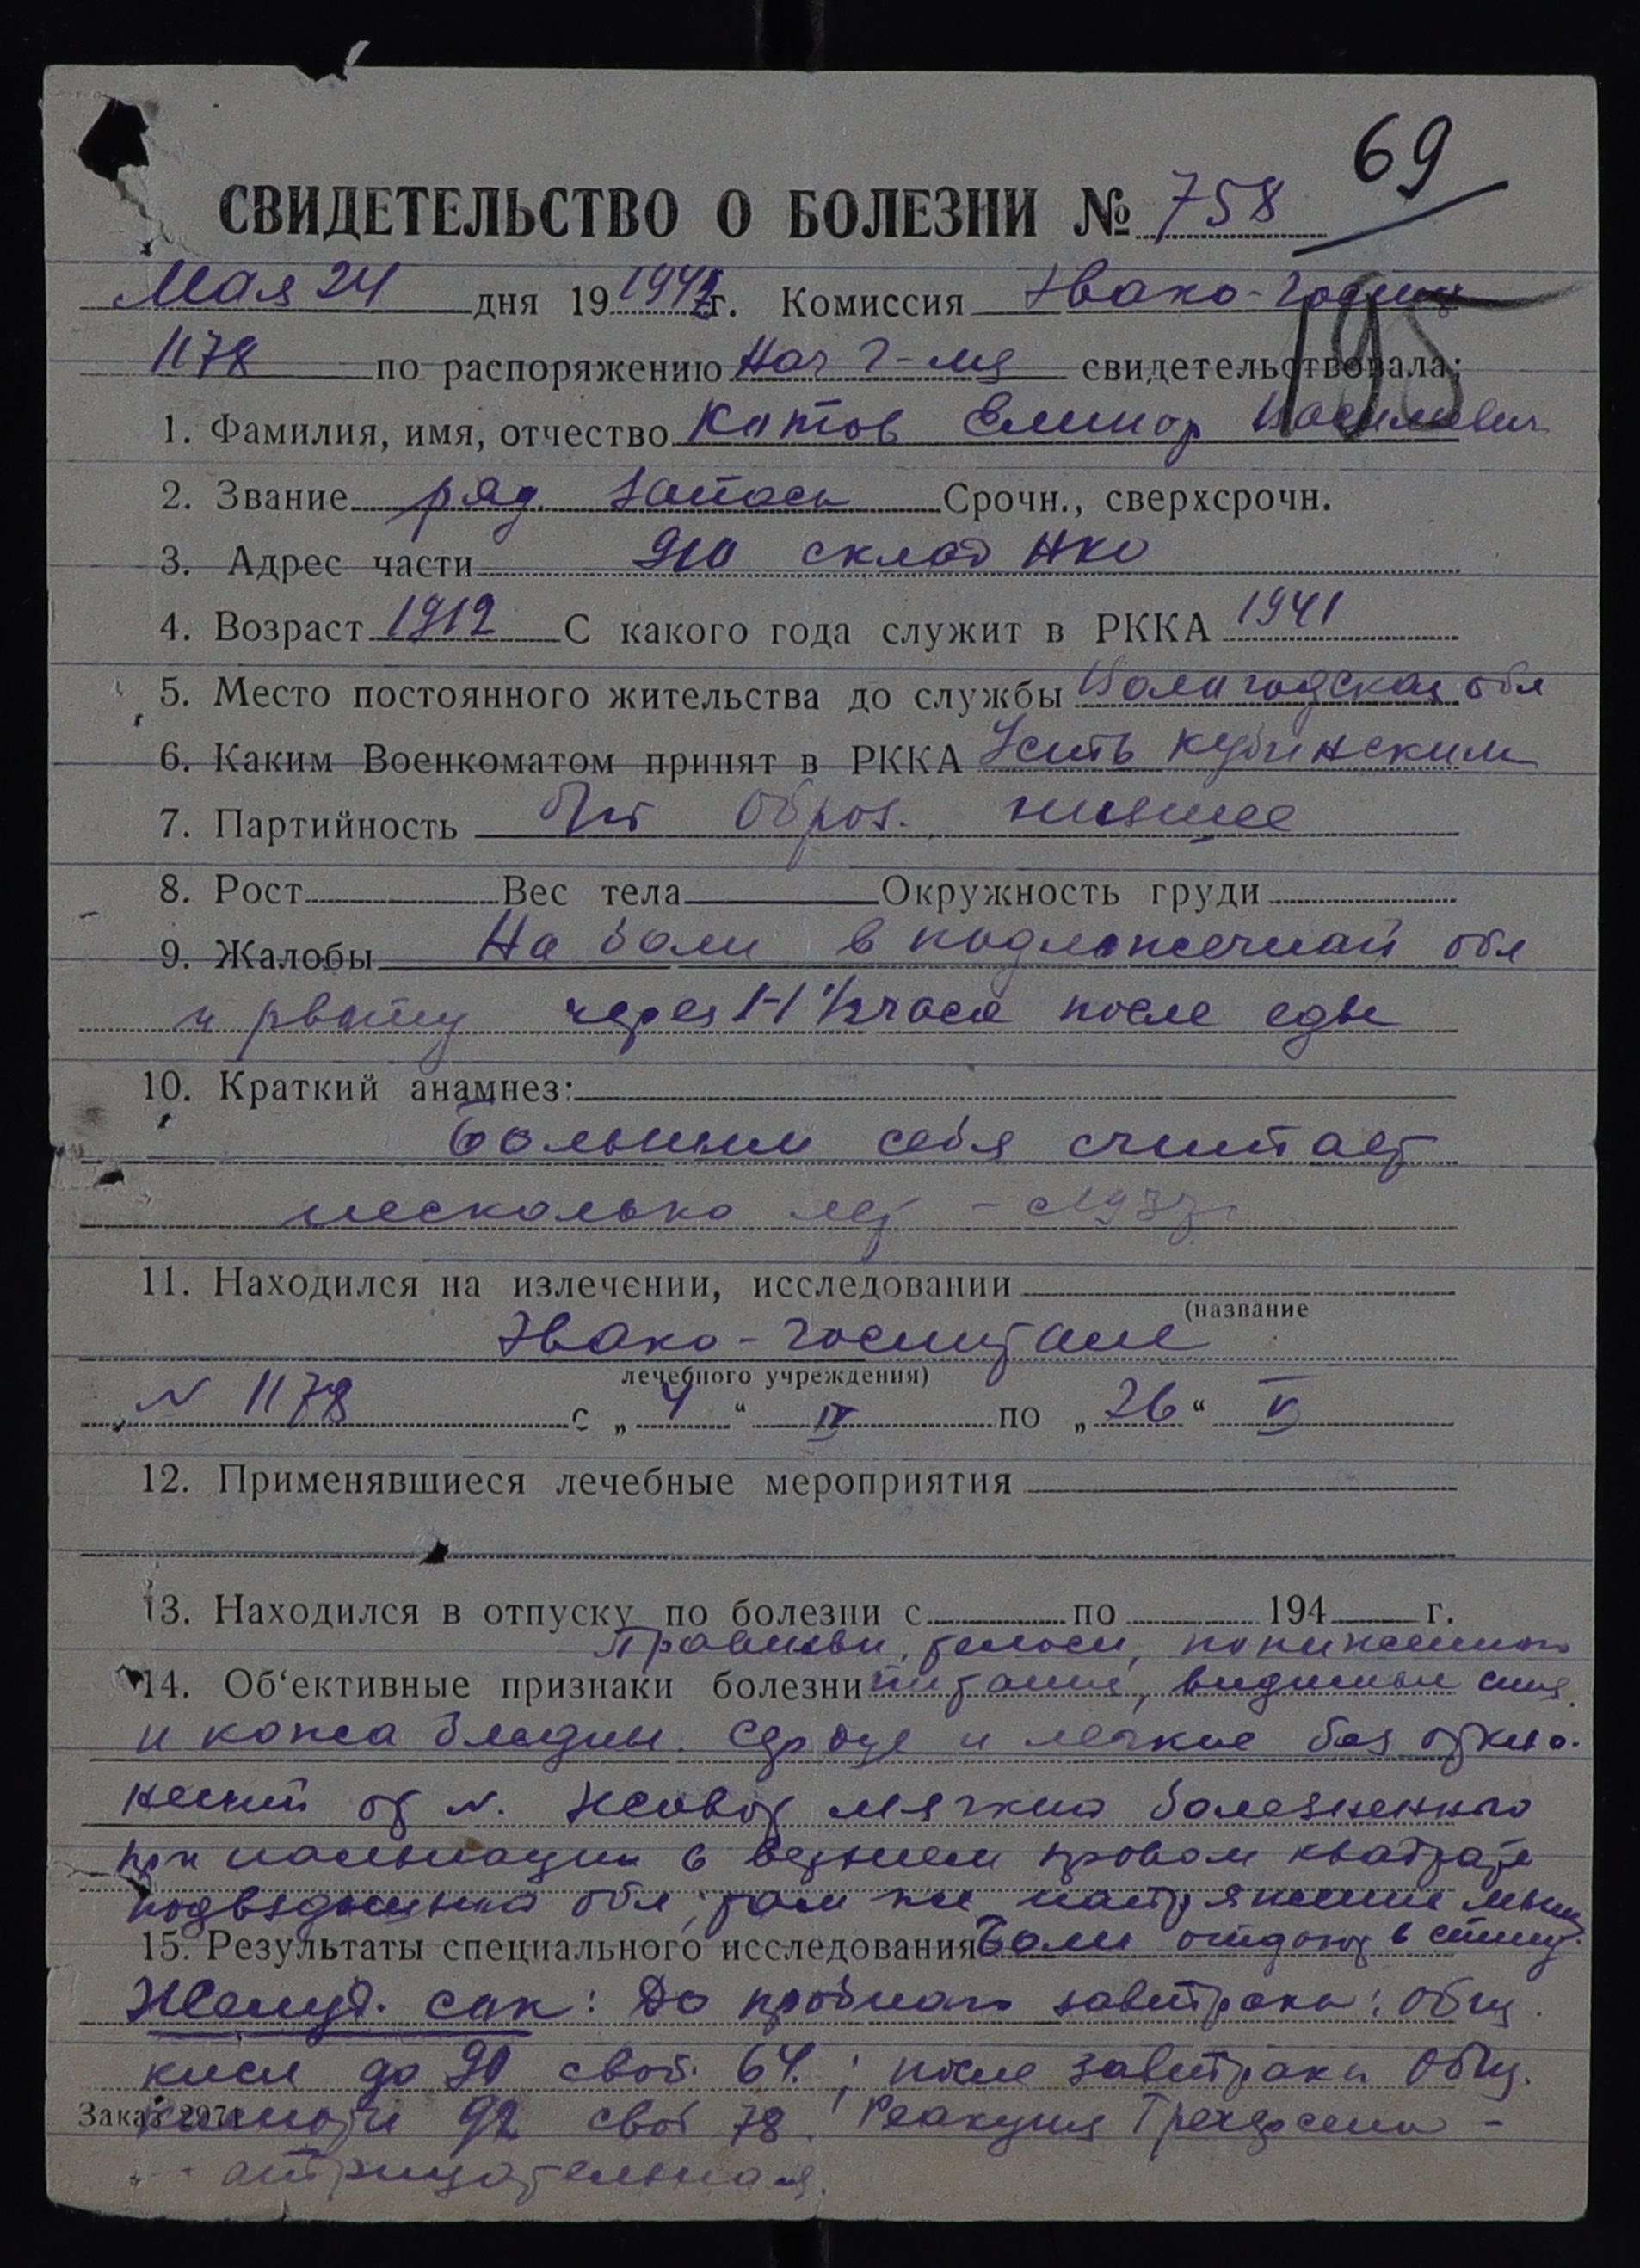 69
СВИДЕТЕЛЬСТВО О БОЛЕЗНИ № 758
195
Мая 24 дня 19 1942 г. Комиссия Эвако-госпит
1178 по распоряжению Нач г-ля свидетельствовала:
1. Фамилия, имя, отчество Котов Елиног Васильевич
2. Звание ряд. запаса Срочн., сверхсрочн.
3. Адрес части 910 склад НКО
4. Возраст 1912 С какого года служит в РККА 1941
5. Место постоянного жительства до службы Вологодская обл
6. Каким Военкоматом принят в РККА Усть Кубинским
7. Партийность б/п Образ. низшее
8. Рост Вес тела Окружность груди
9. Жалобы На боли в подложечной обл
и рвоту через 1-1 1/2 часа после еды
10. Краткий анамнез:
Больным себя считает
несколько лет – с 1937г
11. Находился на излечении, исследовании
(название
Эвако-госпитале
лечебного учреждения)
N 1178 с „ 4 “ IV по „ 26 “ V
12. Применявшиеся лечебные мероприятия
13. Находился в отпуску по болезни с по 194 г.
Правильн. телосл, пониженного
14. Об‘ективные признаки болезни питания, видимые слиз.
и кожа бледны. Сердце и легкие без откло-
нений от N. Живот мягкий болезненный
при пальпации в верхнем правом квадрате
подвздошной обл, там же напряжение мышц
15. Результаты специального исследования Боли отдают в спину.
Желуд. сок: До пробного завтрака: общ.
кисл до 90 своб. 64. ; после завтрака Общ.
Заказ 2971 кислоты 92 своб 78. Реакция Грегерсена –
отрицательная.